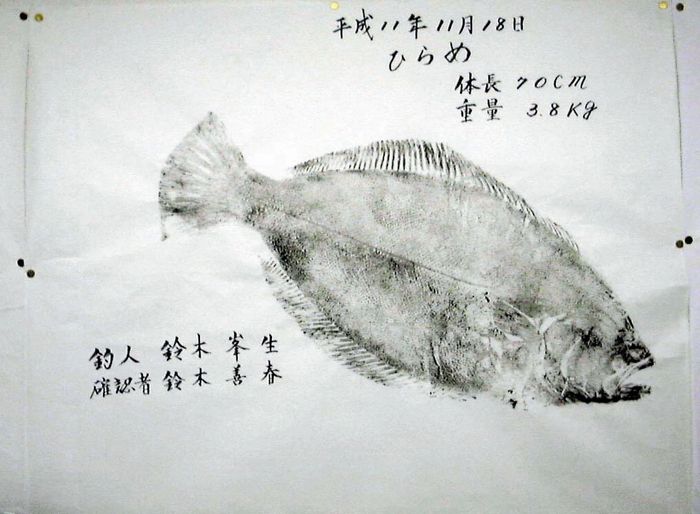 平成11年11月18日
ひらめ
体長 70cm
重量 3.8Kg
釣人 鈴木 峯生
確認者 鈴木 善春